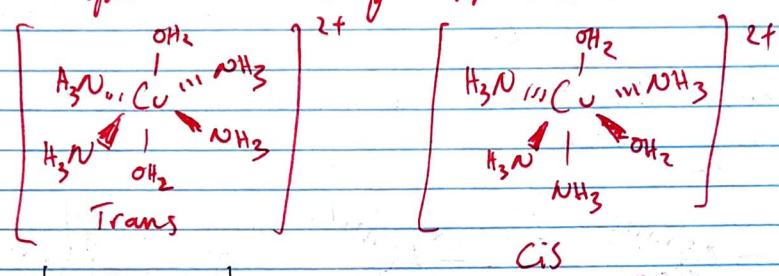 [ OH2 ]2+
H3N Cu NH3
H3N NH3
OH2
Trans
[ OH2 ]2+
H3N Cu NH3
H3N OH2
NH3
Cis